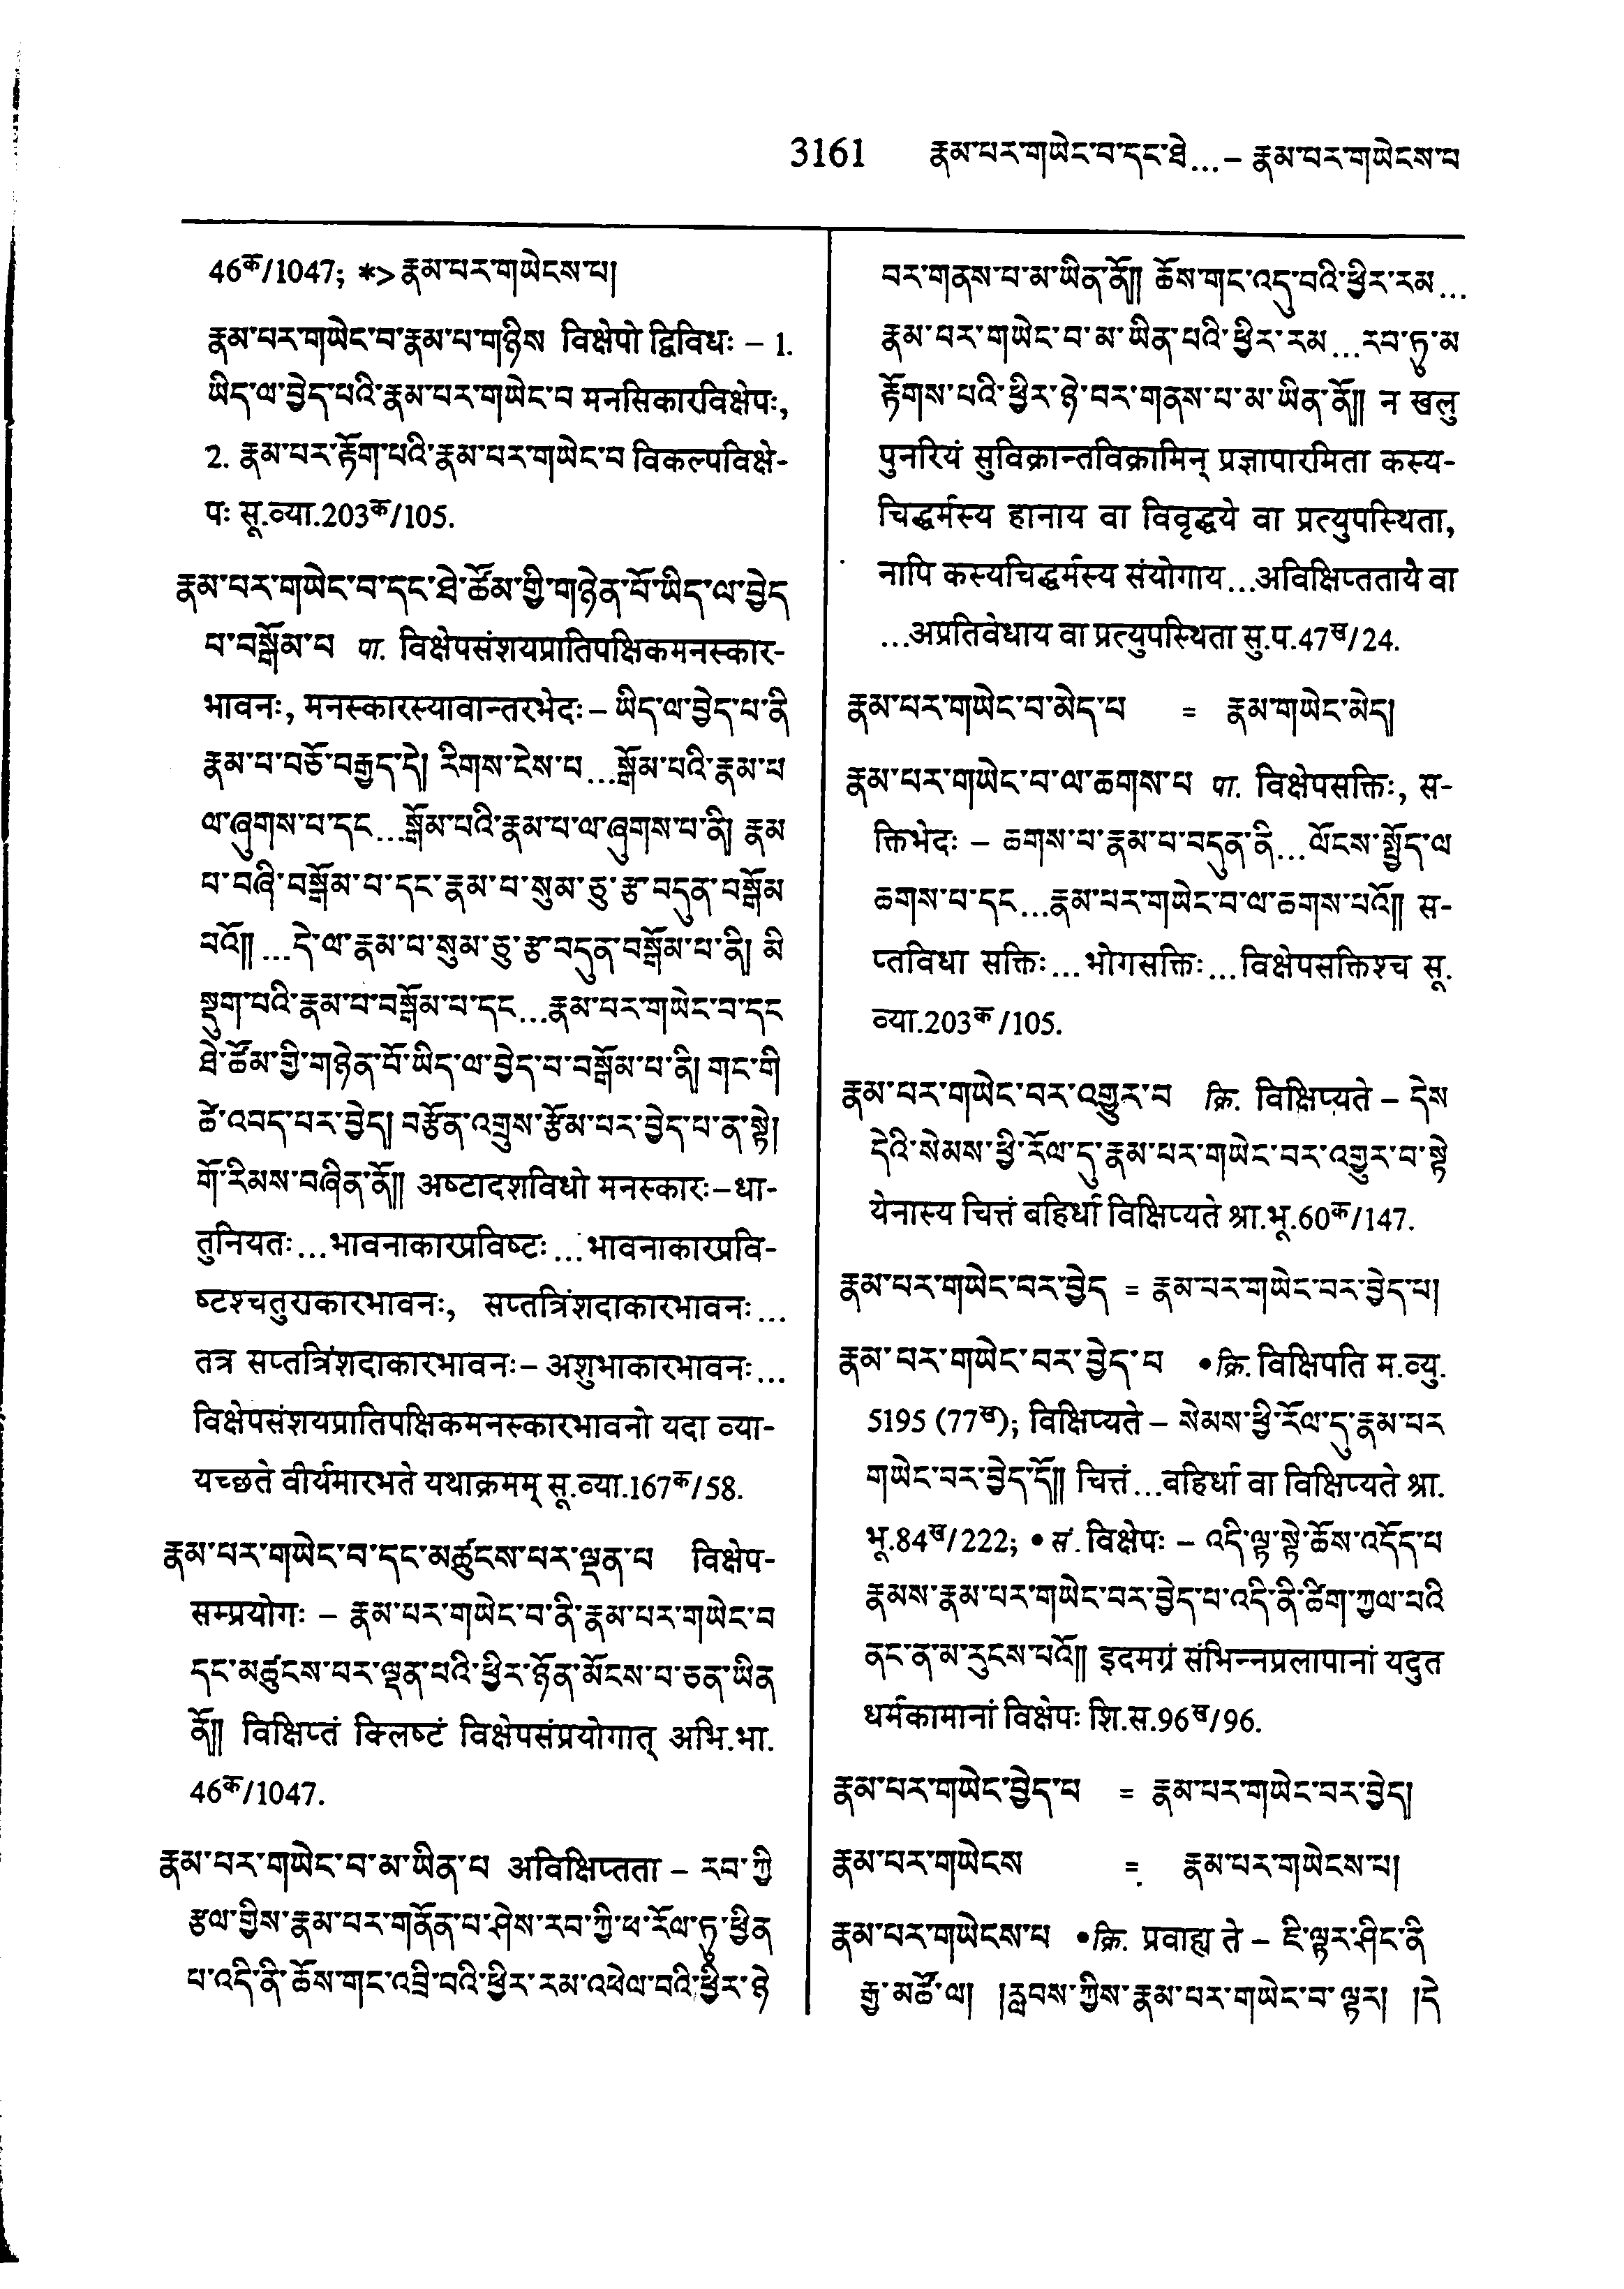 3161 རྣམ་པར་གཡེང་བ་དང་ཐེ...– རྣམ་པར་གཡེངས་པ
46क/1047; *> རྣམ་པར་གཡེངས་པ།
རྣམ་པར་གཡེང་བ་རྣམ་པ་གཉིས विक्षेपो द्विविधः – 1.
ཡིད་ལ་བྱེད་པའི་རྣམ་པར་གཡེང་བ मनसिकारविक्षेपः,
2. རྣམ་པར་རྟོག་པའི་རྣམ་པར་གཡེང་བ विकल्पविक्षे-
पः सू.व्या.203क/105.
རྣམ་པར་གཡེང་བ་དང་ཐེ་ཚོམ་གྱི་གཉེན་པོ་ཡིད་ལ་བྱེད
པ་བསྒོམ་པ पा. विक्षेपसंशयप्रातिपक्षिकमनस्कार-
भावनः, मनस्कारस्यावान्तरभेदः – ཡིད་ལ་བྱེད་པ་ནི
རྣམ་པ་བཅོ་བརྒྱད་དེ། རིགས་ངེས་པ...སྒོམ་པའི་རྣམ་པ
ལ་ཞུགས་པ་དང...སྒོམ་པའི་རྣམ་པ་ལ་ཞུགས་པ་ནི། རྣམ
པ་བཞི་བསྒོམ་པ་དང་རྣམ་པ་སུམ་ཅུ་རྩ་བདུན་བསྒོམ
པའོ།། ...དེ་ལ་རྣམ་པ་སུམ་ཅུ་རྩ་བདུན་བསྒོམ་པ་ནི། མི
སྡུག་པའི་རྣམ་པ་བསྒོམ་པ་དང...རྣམ་པར་གཡེང་བ་དང
ཐེ་ཚོམ་གྱི་གཉེན་པོ་ཡིད་ལ་བྱེད་པ་བསྒོམ་པ་ནི། གང་གི
ཚེ་འབད་པར་བྱེད། བརྩོན་འགྲུས་རྩོམ་པར་བྱེད་པ་ན་སྟེ།
གོ་རིམས་བཞིན་ནོ།། अष्टादशविधो मनस्कारः–धा-
तुनियतः...भावनाकारप्रविष्टः...भावनाकारप्रवि-
ष्टश्चतुराकारभावनः, सप्तत्रिंशदाकारभावनः...
तत्र सप्तत्रिंशदाकारभावनः– अशुभाकारभावनः...
विक्षेपसंशयप्रातिपक्षिकमनस्कारभावनो यदा व्या-
यच्छते वीर्यमारभते यथाक्रमम् सू.व्या.167क/58.
རྣམ་པར་གཡེང་བ་དང་མཚུངས་པར་ལྡན་པ विक्षेप-
सम्प्रयोगः – རྣམ་པར་གཡེང་བ་ནི་རྣམ་པར་གཡེང་བ
དང་མཚུངས་པར་ལྡན་པའི་ཕྱིར་ཉོན་མོངས་པ་ཅན་ཡིན
ནོ།། विक्षिप्तं क्लिष्टं विक्षेपसंप्रयोगात् अभि.भा.
46क/1047.
རྣམ་པར་གཡེང་བ་མ་ཡིན་པ अविक्षिप्तता – རབ་ཀྱི
རྩལ་གྱིས་རྣམ་པར་གནོན་པ་ཤེས་རབ་ཀྱི་ཕ་རོལ་ཏུ་ཕྱིན
པ་འདི་ནི་ཆོས་གང་འབྲི་བའི་ཕྱིར་རམ་འཕེལ་བའི་ཕྱིར་ཉེ
བར་གནས་པ་མ་ཡིན་ནོ།། ཆོས་གང་འདུ་བའི་ཕྱིར་རམ...
རྣམ་པར་གཡེང་བ་མ་ཡིན་པའི་ཕྱིར་རམ...རབ་ཏུ་མ
རྟོགས་པའི་ཕྱིར་ཉེ་བར་གནས་པ་མ་ཡིན་ནོ།། न खलु
पुनरियं सुविक्रान्तविक्रामिन् प्रज्ञापारमिता कस्य-
चिद्धर्मस्य हानाय वा विवृद्धये वा प्रत्युपस्थिता,
नापि कस्यचिद्धर्मस्य संयोगाय...अविक्षिप्ततायै वा
...अप्रतिवेधाय वा प्रत्युपस्थिता सु.प.47ख/24.
རྣམ་པར་གཡེང་བ་མེད་པ = རྣམ་གཡེང་མེད།
རྣམ་པར་གཡེང་བ་ལ་ཆགས་པ पा. विक्षेपसक्तिः, स-
क्तिभेदः – ཆགས་པ་རྣམ་པ་བདུན་ནི...ལོངས་སྤྱོད་ལ
ཆགས་པ་དང...རྣམ་པར་གཡེང་བ་ལ་ཆགས་པའོ།། स-
प्तविधा सक्तिः...भोगसक्तिः...विक्षेपसक्तिश्च सू.
व्या.203क/105.
རྣམ་པར་གཡེང་བར་འགྱུར་བ क्रि. विक्षिप्यते – དེས
དེའི་སེམས་ཕྱི་རོལ་དུ་རྣམ་པར་གཡེང་བར་འགྱུར་བ་སྟེ
येनास्य चित्तं बहिर्धा विक्षिप्यते श्रा.भू.60क/147.
རྣམ་པར་གཡེང་བར་བྱེད = རྣམ་པར་གཡེང་བར་བྱེད་པ།
རྣམ་པར་གཡེང་བར་བྱེད་པ •क्रि. विक्षिपति म.व्यु.
5195 (77ख); विक्षिप्यते – སེམས་ཕྱི་རོལ་དུ་རྣམ་པར
གཡེང་བར་བྱེད་དོ།། चित्तं...बहिर्धा वा विक्षिप्यते श्रा.
भू.84ख/222; • सं. विक्षेपः – འདི་ལྟ་སྟེ་ཆོས་འདོད་པ
རྣམས་རྣམ་པར་གཡེང་བར་བྱེད་པ་འདི་ནི་ཚིག་ཀྱལ་པའི
ནང་ན་མ་རུངས་པའོ།། इदमग्रं संभिन्नप्रलापानां यदुत
धर्मकामानां विक्षेपः शि.स.96ख/96.
རྣམ་པར་གཡེང་བྱེད་པ = རྣམ་པར་གཡེང་བར་བྱེད།
རྣམ་པར་གཡེངས = རྣམ་པར་གཡེངས་པ།
རྣམ་པར་གཡེངས་པ •क्रि. प्रवाह्य ते – ཇི་ལྟར་ཤིང་ནི
རྒྱ་མཚོ་ལ། །རླབས་ཀྱིས་རྣམ་པར་གཡེང་བ་ལྟར། །དེ